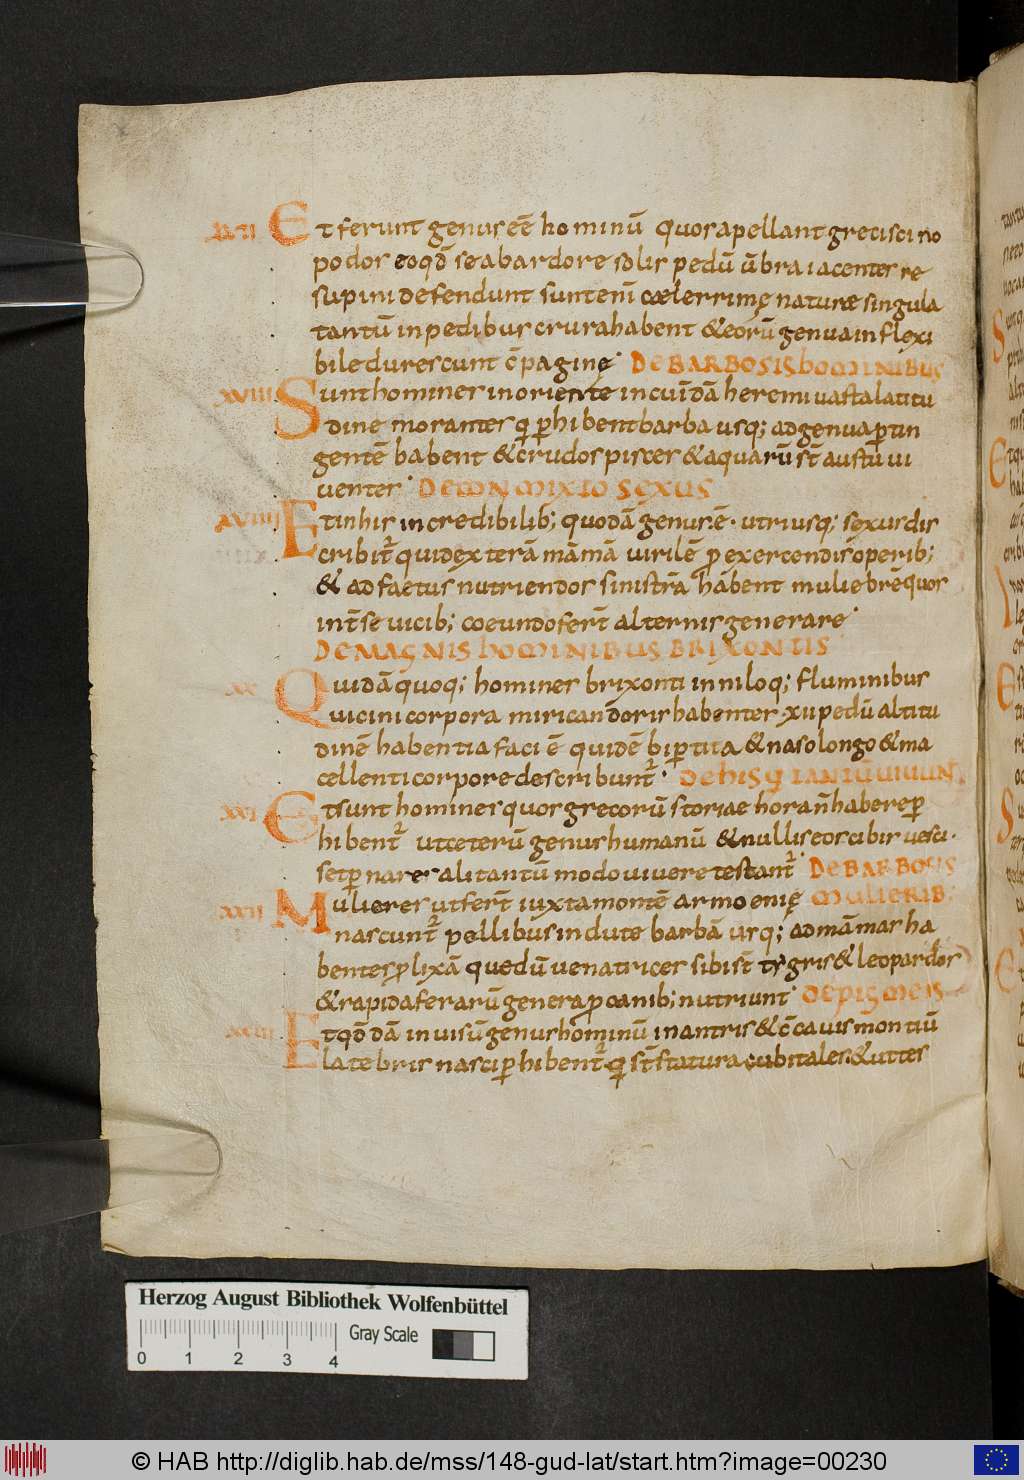 XVII Et ferunt genus eē hominū quos apellant greci scino
podos eo qđ se ab ardore solis pedū ūbra iacentes re
supini defendunt sunt eni̅ cœlerrimę naturæ singula
tantū in pedibus crura habent & eorū genua inflexi
bile durescunt c̄pagine· DE BARBOSIS hOMINIBUS
XVIII Sunt homines in oriente in cuidā heremi uasta latitu
dine morantes qi phibent barba usq; ad genua ptin
gentē habent & crudos pisces & aquarū st̄ austū ui
uentes· DE COMMIXTO SEXUS
XVIIII Et in his incredibilib; quodā genus ē· utriusq; sexus dis
cribit̄ qui dexterā māmā uirilē p exercendis operib;
& ad faetus nutriendos sinistrā habent muliebrē quos
int̄ se uicib; coeundo fert̄ alternis generare·
DE MAGNIS hOMINIBUS BRIXONTIS
XX Quidā quoq; homines brixonti in niloq; fluminibus
uicini corpora miri candoris habentes· xii pedū altitu
dinē habentia faciē quidē bipertita & naso longo & ma
cellenti corpore describunt̄· DE hIS QI TANTŪ UIUUNT
XXI Et sunt homines quos grecorū storiae hora n̄ habere p
hibent̄ ut ceterū genus humanū & nullis eos cibis uesci·
set p nares alitantū modo uiuere testant̄· DE BARBOSIS
XXII Mulieres ut fert̄ iuxta montē armoenię MULIERIB;
nascunt̄ pellibus indute barbā usq; ad māmas ha
bentes plixā que dū uenatrices sibi st̄ tygris & leopardos
& rapida ferarū genera p canib; nutriunt· DE PIGMEIS
XXIII Et qđdā inuisū genus hominū in antris & c̄cauis montiū
latebris nasci phibent̄ qi st̄ statura cubitales & ut tes
Herzog August Bibliothek Wolfenbüttel
Gray Scale
0 1 2 3 4
© HAB http://diglib.hab.de/mss/148-gud-lat/start.htm?image=00230